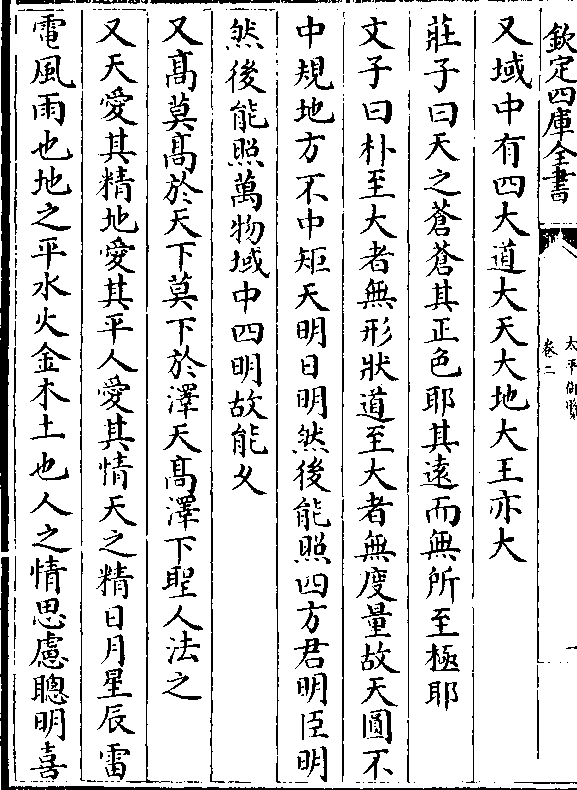 欽定四庫全書
太平御覽
卷二
一
又域中有四大道大天大地大王亦大
莊子曰天之蒼蒼其正色耶其遠而無所至極耶
文子曰朴至大者無形狀道至大者無度量故天圓不
中規地方不中矩天明日明然後能照四方君明臣明
然後能照萬物域中四明故能久
又髙莫髙於天下莫下於澤天髙澤下聖人法之
又天愛其精地愛其平人愛其情天之精日月星辰雷
電風雨也地之平水火金木土也人之情思慮聰明喜